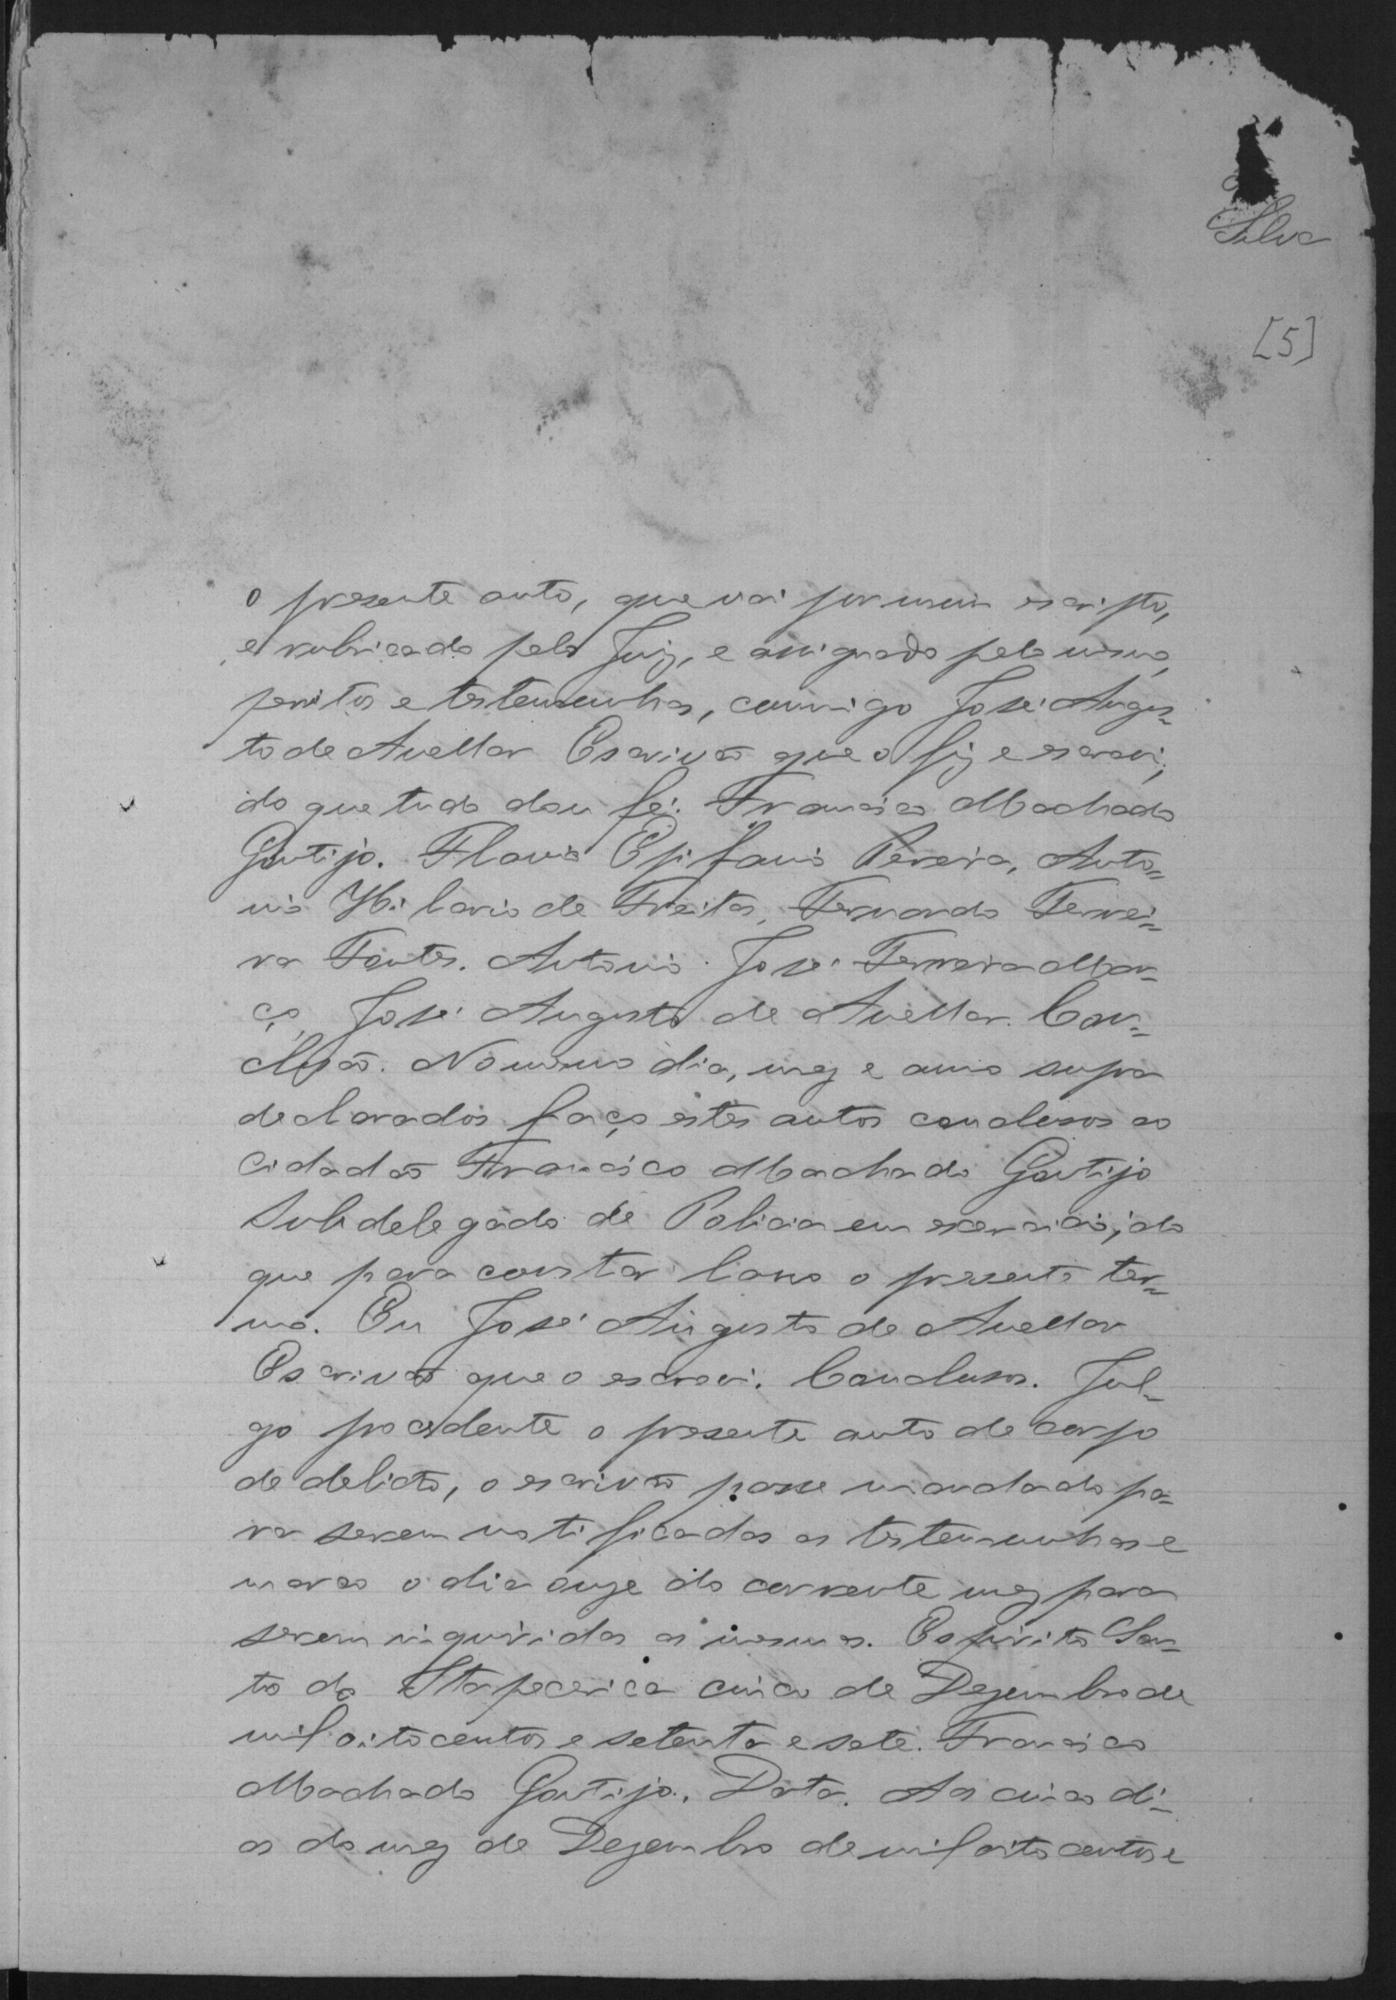 Silva
[5]
o presente auto, que vai por mim escripto,
e rubricado pelo Juiz, e assignado pelo mesmo,
peritos e testemunhas, commigo José Augus=
to de Avellar Escrivão que o fiz e escrevi,
do que tudo dou fé. Francisco Machado
Gontijo. Flavio Epifanio Pereira, Anto=
nio Hilario de Freitas, Fernando Ferrei=
ra Fontes. Antonio José Ferreira Mar=
ço, José Augusto de Avellar. Con=
clusão. No mesmo dia, mez e anno supra
declarados faço estes autos conclusos ao
cidadão Francisco Machado Gontijo
Subdelegado de Policia em exercicio, do
que para constar lavro o presente ter=
mo. Eu José Augusto de Avellar
Escrivão que o escrevi. Conclusos. Jul=
go procedente o presente auto de corpo
de delicto, o escrivão passe mandado pa=
ra serem notificadas as testemunhas e
marco o dia onze do corrente mez para
serem inquiridas as mesmas. Espirito San=
to da Itapecerica cinco de Dezembro de
mil oitocentos e setenta e sete. Francisco
Machado Gontijo. Data. Aos cinco di=
as do mez de Dezembro de mil oitocentos e